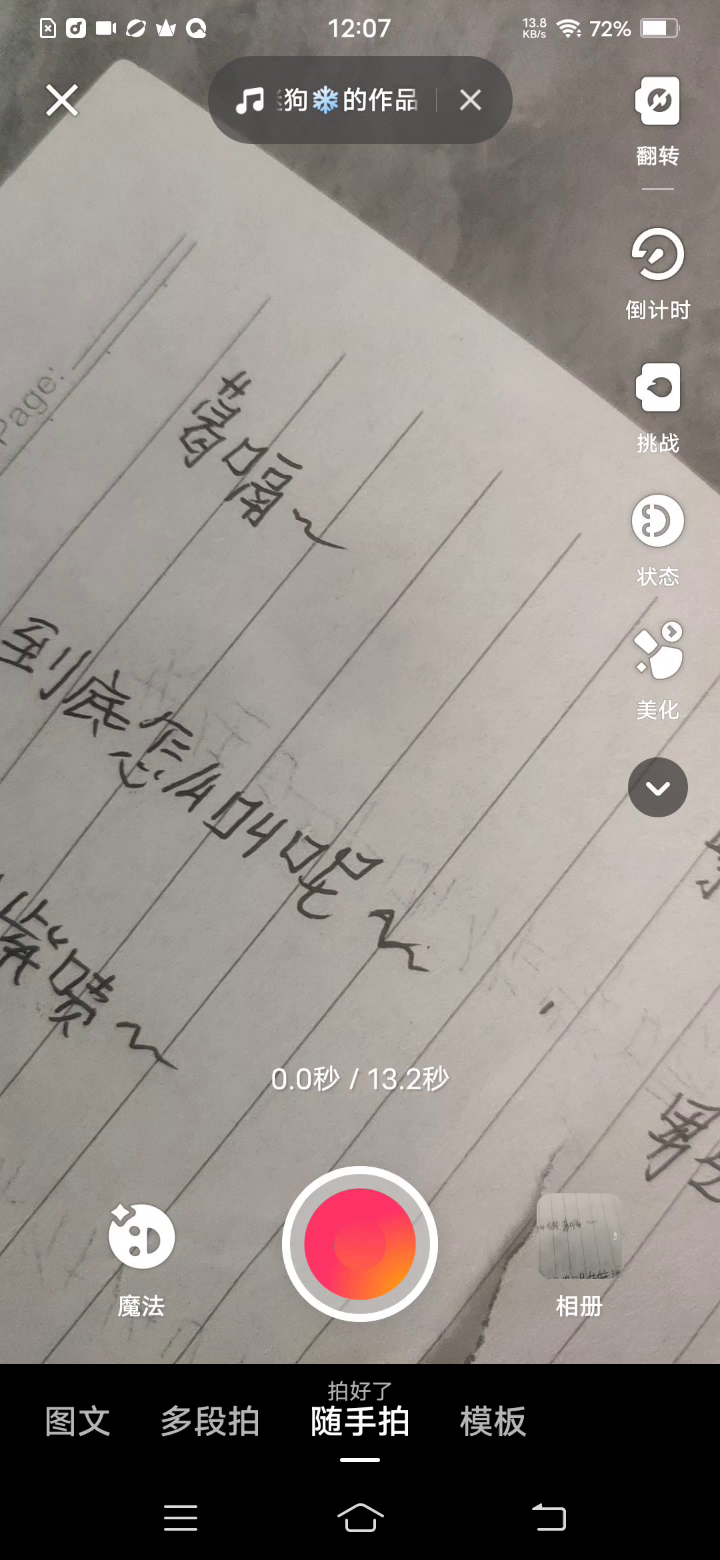 12:07
13.8
KB/s
72%
狗❄的作品
翻转
倒计时
挑战
状态
美化
Page:
嗝~
到底怎么叫呢~
紫喷~
男
0.0秒 / 13.2秒
魔法
相册
拍好了
图文 多段拍 随手拍 模板